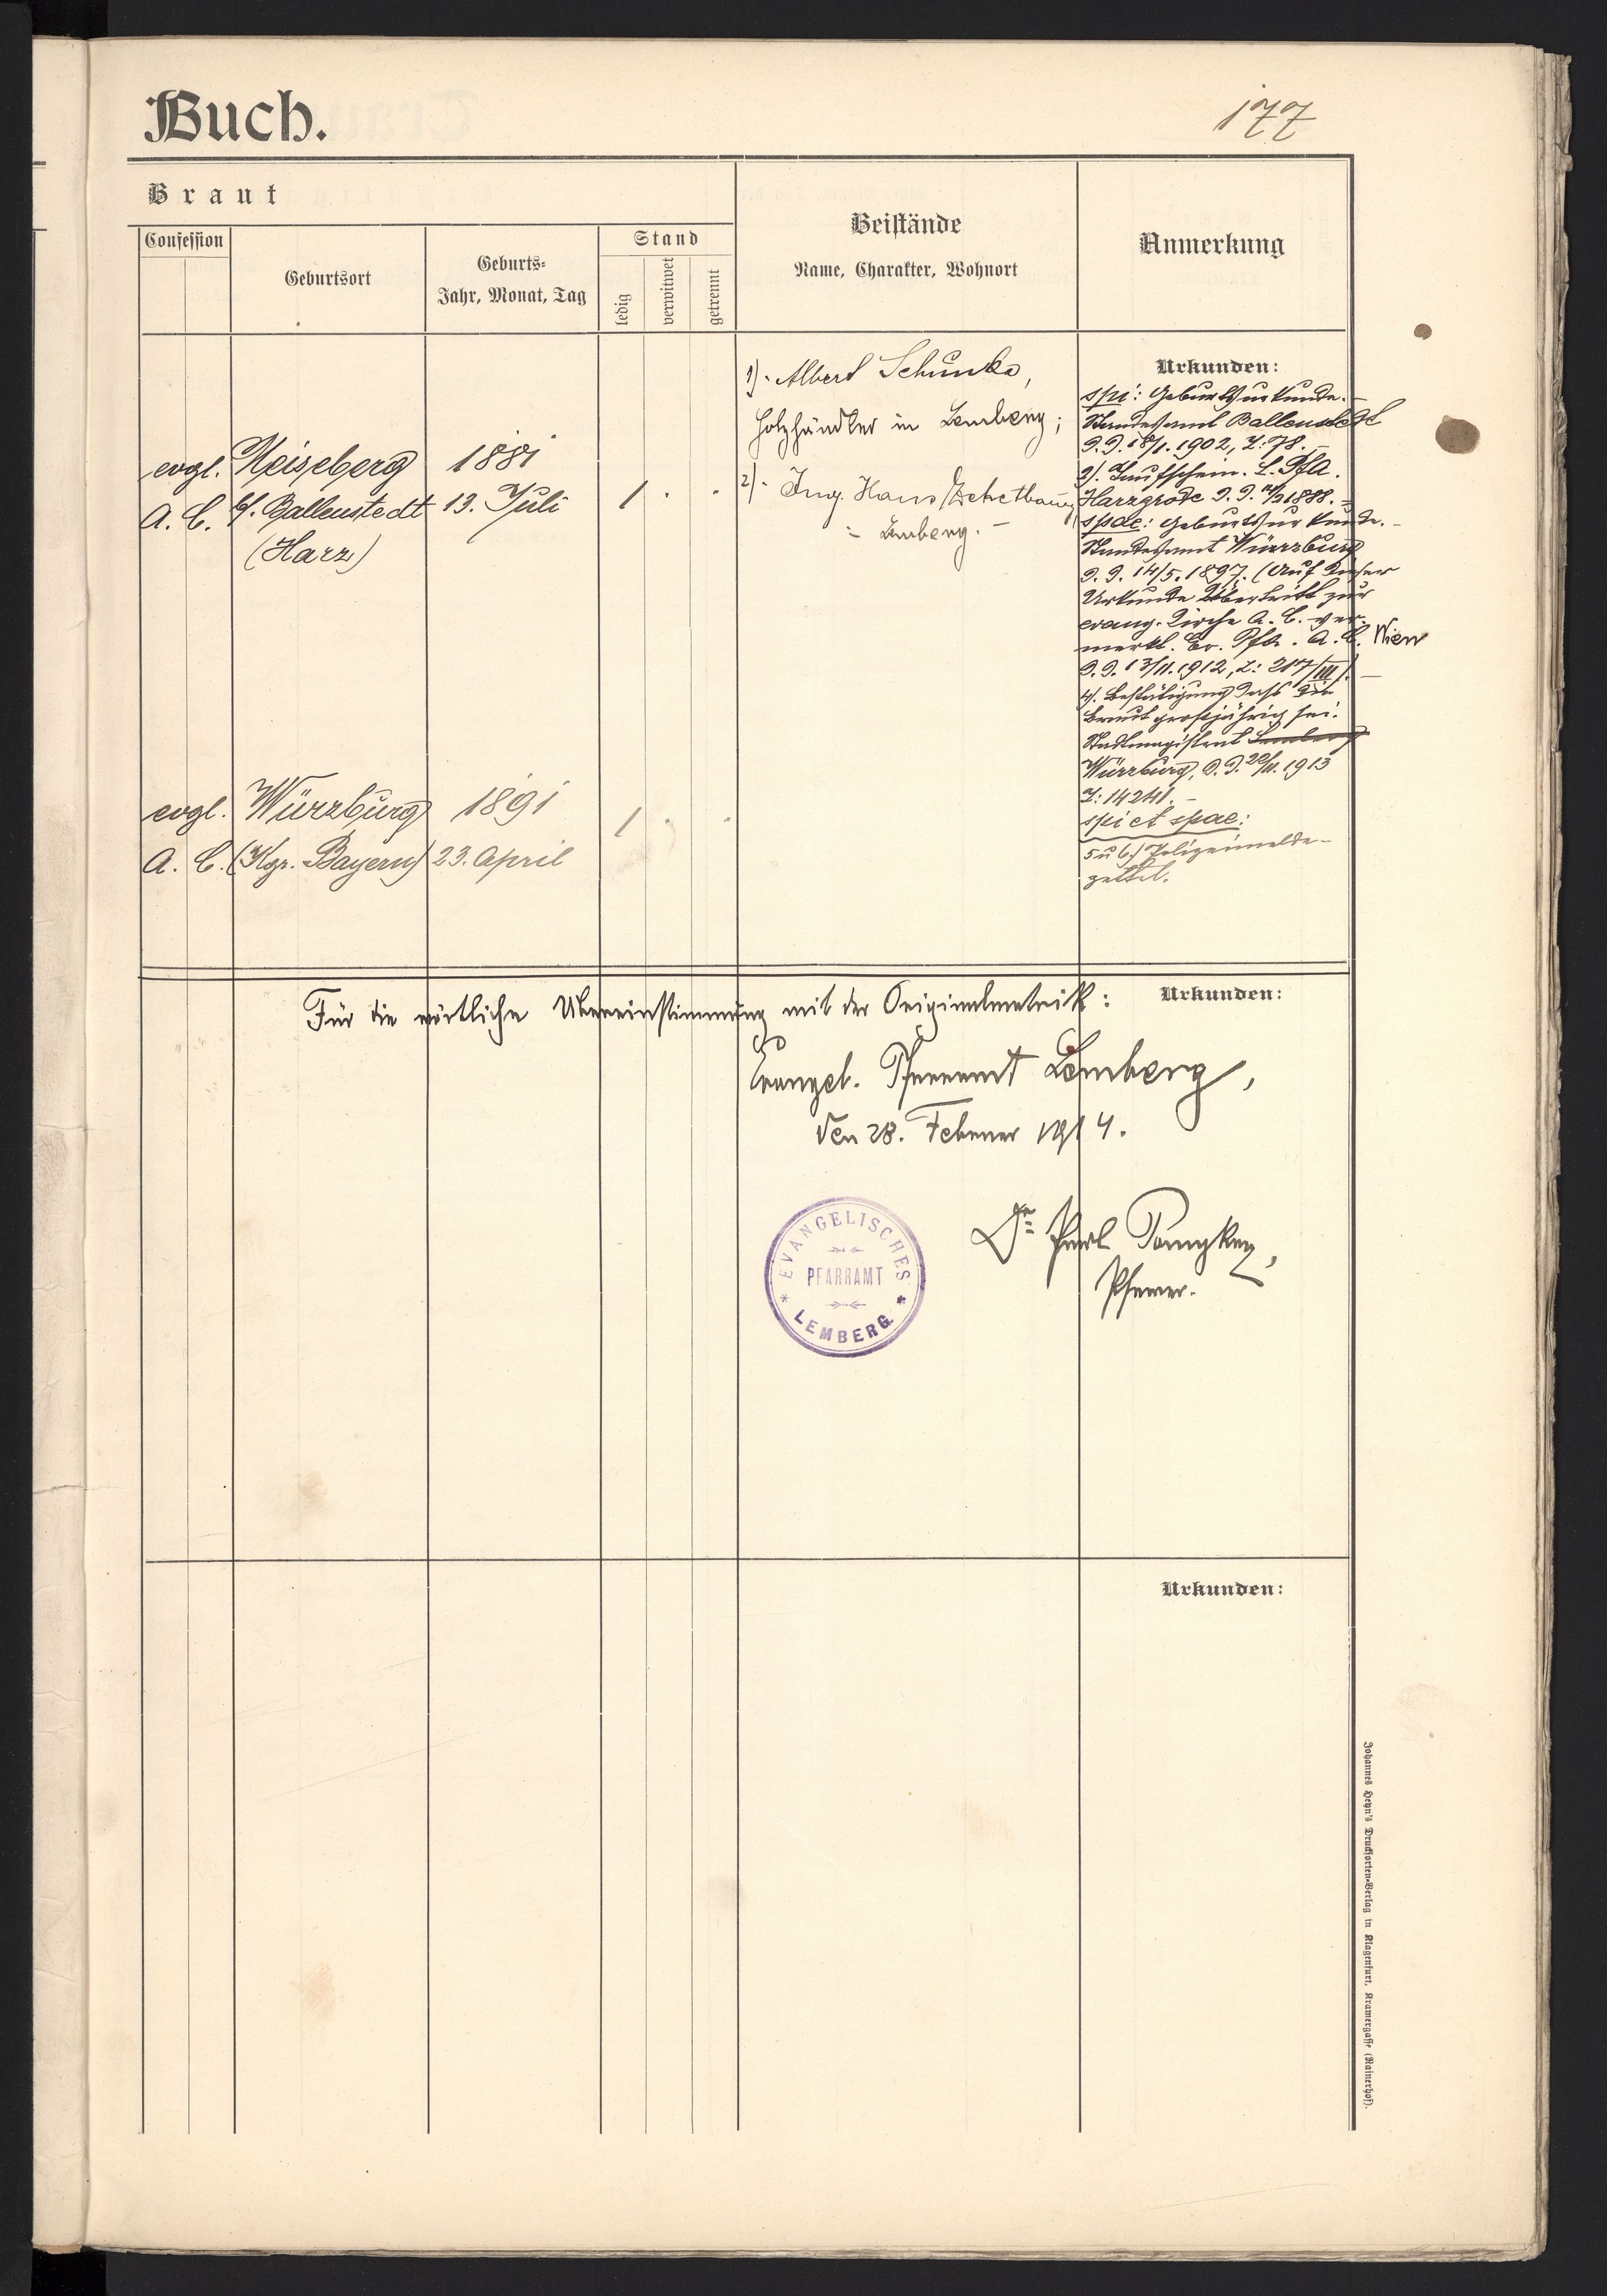 Buch.
177
Braut
Confession
Geburtsort
Geburts-
Jahr, Monat, Tag
Stand
ledig
verwitwet
getrennt
Beistände
Name, Charakter, Wohnort
Anmerkung
evgl.
A. C.
Meiseberg
b/. Ballenstedt
(Harz)
1881
13. Juli
1 . .
1). Albert Schunke,
Holzhändler in Lemberg;
2). Ing. Hans
Lemberg. –
Urkunden:
spi: Geburtsurkunde. –
Standesamt Ballenstedt
d. d. 18/1. 1902, Z: 78. –
2). Taufschein. L. PfA.
Harzgrode d. d. 1888. –
spae: Geburtsurkunde. –
Standesamt Würzburg
d. d. 14/5. 1897. (Auf dieser
Urkunde Übertritt zur
evang. Kirche A. C. ver-
merkt. Ev. Pfa. A. C. Wien
d. d. 13/11. 1912, Z: 217/III). –
4). Bestätigung dass die
Braut grossjährig sei.
Stadtmagistrat Lemberg
Würzburg, d. d. 20/11. 1913
Z: 14241. –
spi et spae:
5 u 6.) Polizeimelde-
zettel.
evgl.
A. C.
Würzburg
(Kgr. Bayern)
1891
23. April
1 . .
Für die wörtliche Übereinstimmung mit der Originalmatrik:
Urkunden:
Evangel. Pfarramt Lemberg,
den 28. Feber 1914.
EVANGELISCHES
PFARRAMT
LEMBERG
Dr.
Pfarrer.
Urkunden:
Johannes Heyn's Drucksorten-Verlag in Klagenfurt, Kramergasse (Rainerhof).